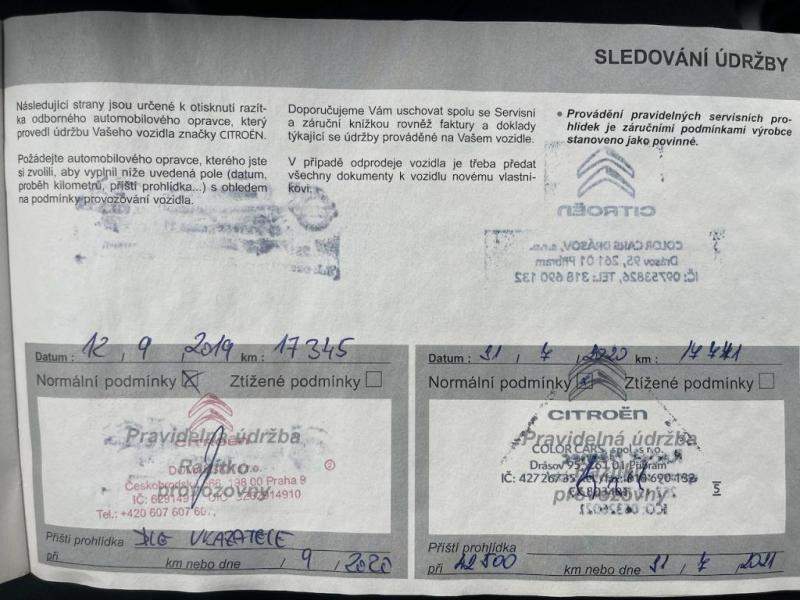 SLEDOVÁNÍ ÚDRŽBY
Následující strany jsou určené k otisknutí razít-
ka odborného automobilového opravce, který
provedl údržbu Vašeho vozidla značky CITROËN.
Požádejte automobilového opravce, kterého jste
si zvolili, aby vyplnil níže uvedená pole (datum,
proběh kilometrů, příští prohlídka...) s ohledem
na podmínky provozování vozidla.
Doporučujeme Vám uschovat spolu se Servisní
a záruční knížkou rovněž faktury a doklady
týkající se údržby prováděné na Vašem vozidle.
V případě odprodeje vozidla je třeba předat
všechny dokumenty k vozidlu novému vlastní-
kovi.
• Provádění pravidelných servisních pro-
hlídek je záručními podmínkami výrobce
stanoveno jako povinné.
CITROËN
COLOR CARS DRÁSOV, s.r.o.
Drásov 95, 261 01 Příbram
IČ: 09753826, TEL: 318 690 132
Datum : 12 / 9 / 2019 km : 17345
Normální podmínky Ztížené podmínky
CITROËN
Pravidelná údržba
Razítko
provozovny
Českobrodská 198 00 Praha 9
Tel.: +420 607 607
Příští prohlídka DLE UKAZATELE
při km nebo dne / 9 / 2020
Datum : 31 / 7 / 2020 km : 17741
Normální podmínky Ztížené podmínky
CITROËN
Pravidelná údržba
COLOR CARS, spol. s r.o.
Drásov 95, 261 01 Příbram
provozovny
5
Příští prohlídka
při 42500 km nebo dne 31 / 7 / 2021